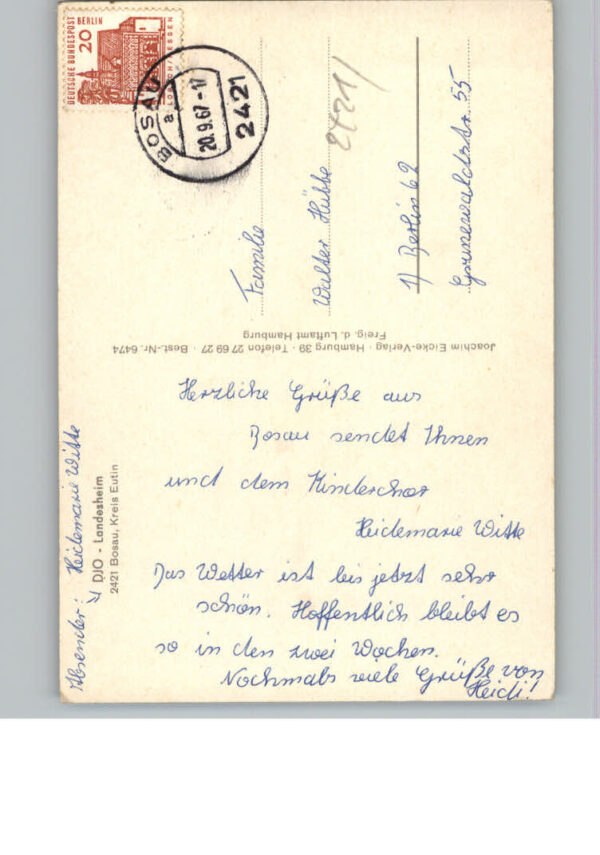 DEUTSCHE BUNDESPOST
BERLIN
20
BOSAU
a
20.9.67-17
2421
2421/
Familie
Walter Hübbe
1) Berlin 62
Grunewaldstr. 55
Joachim Eicke-Verlag · Hamburg 39 · Telefon 27 69 27 · Best.-Nr. 6474
Freig. d. Luftamt Hamburg
Absender: Heidemarie Witte
DJO - Landesheim
2421 Bosau, Kreis Eutin
Herzliche Grüße aus
Bosau sendet Ihnen
und dem Kinderchor
Heidemarie Witte
Das Wetter ist bis jetzt sehr
schön. Hoffentlich bleibt es
so in den zwei Wochen.
Nochmals viele Grüße von
Heidi!